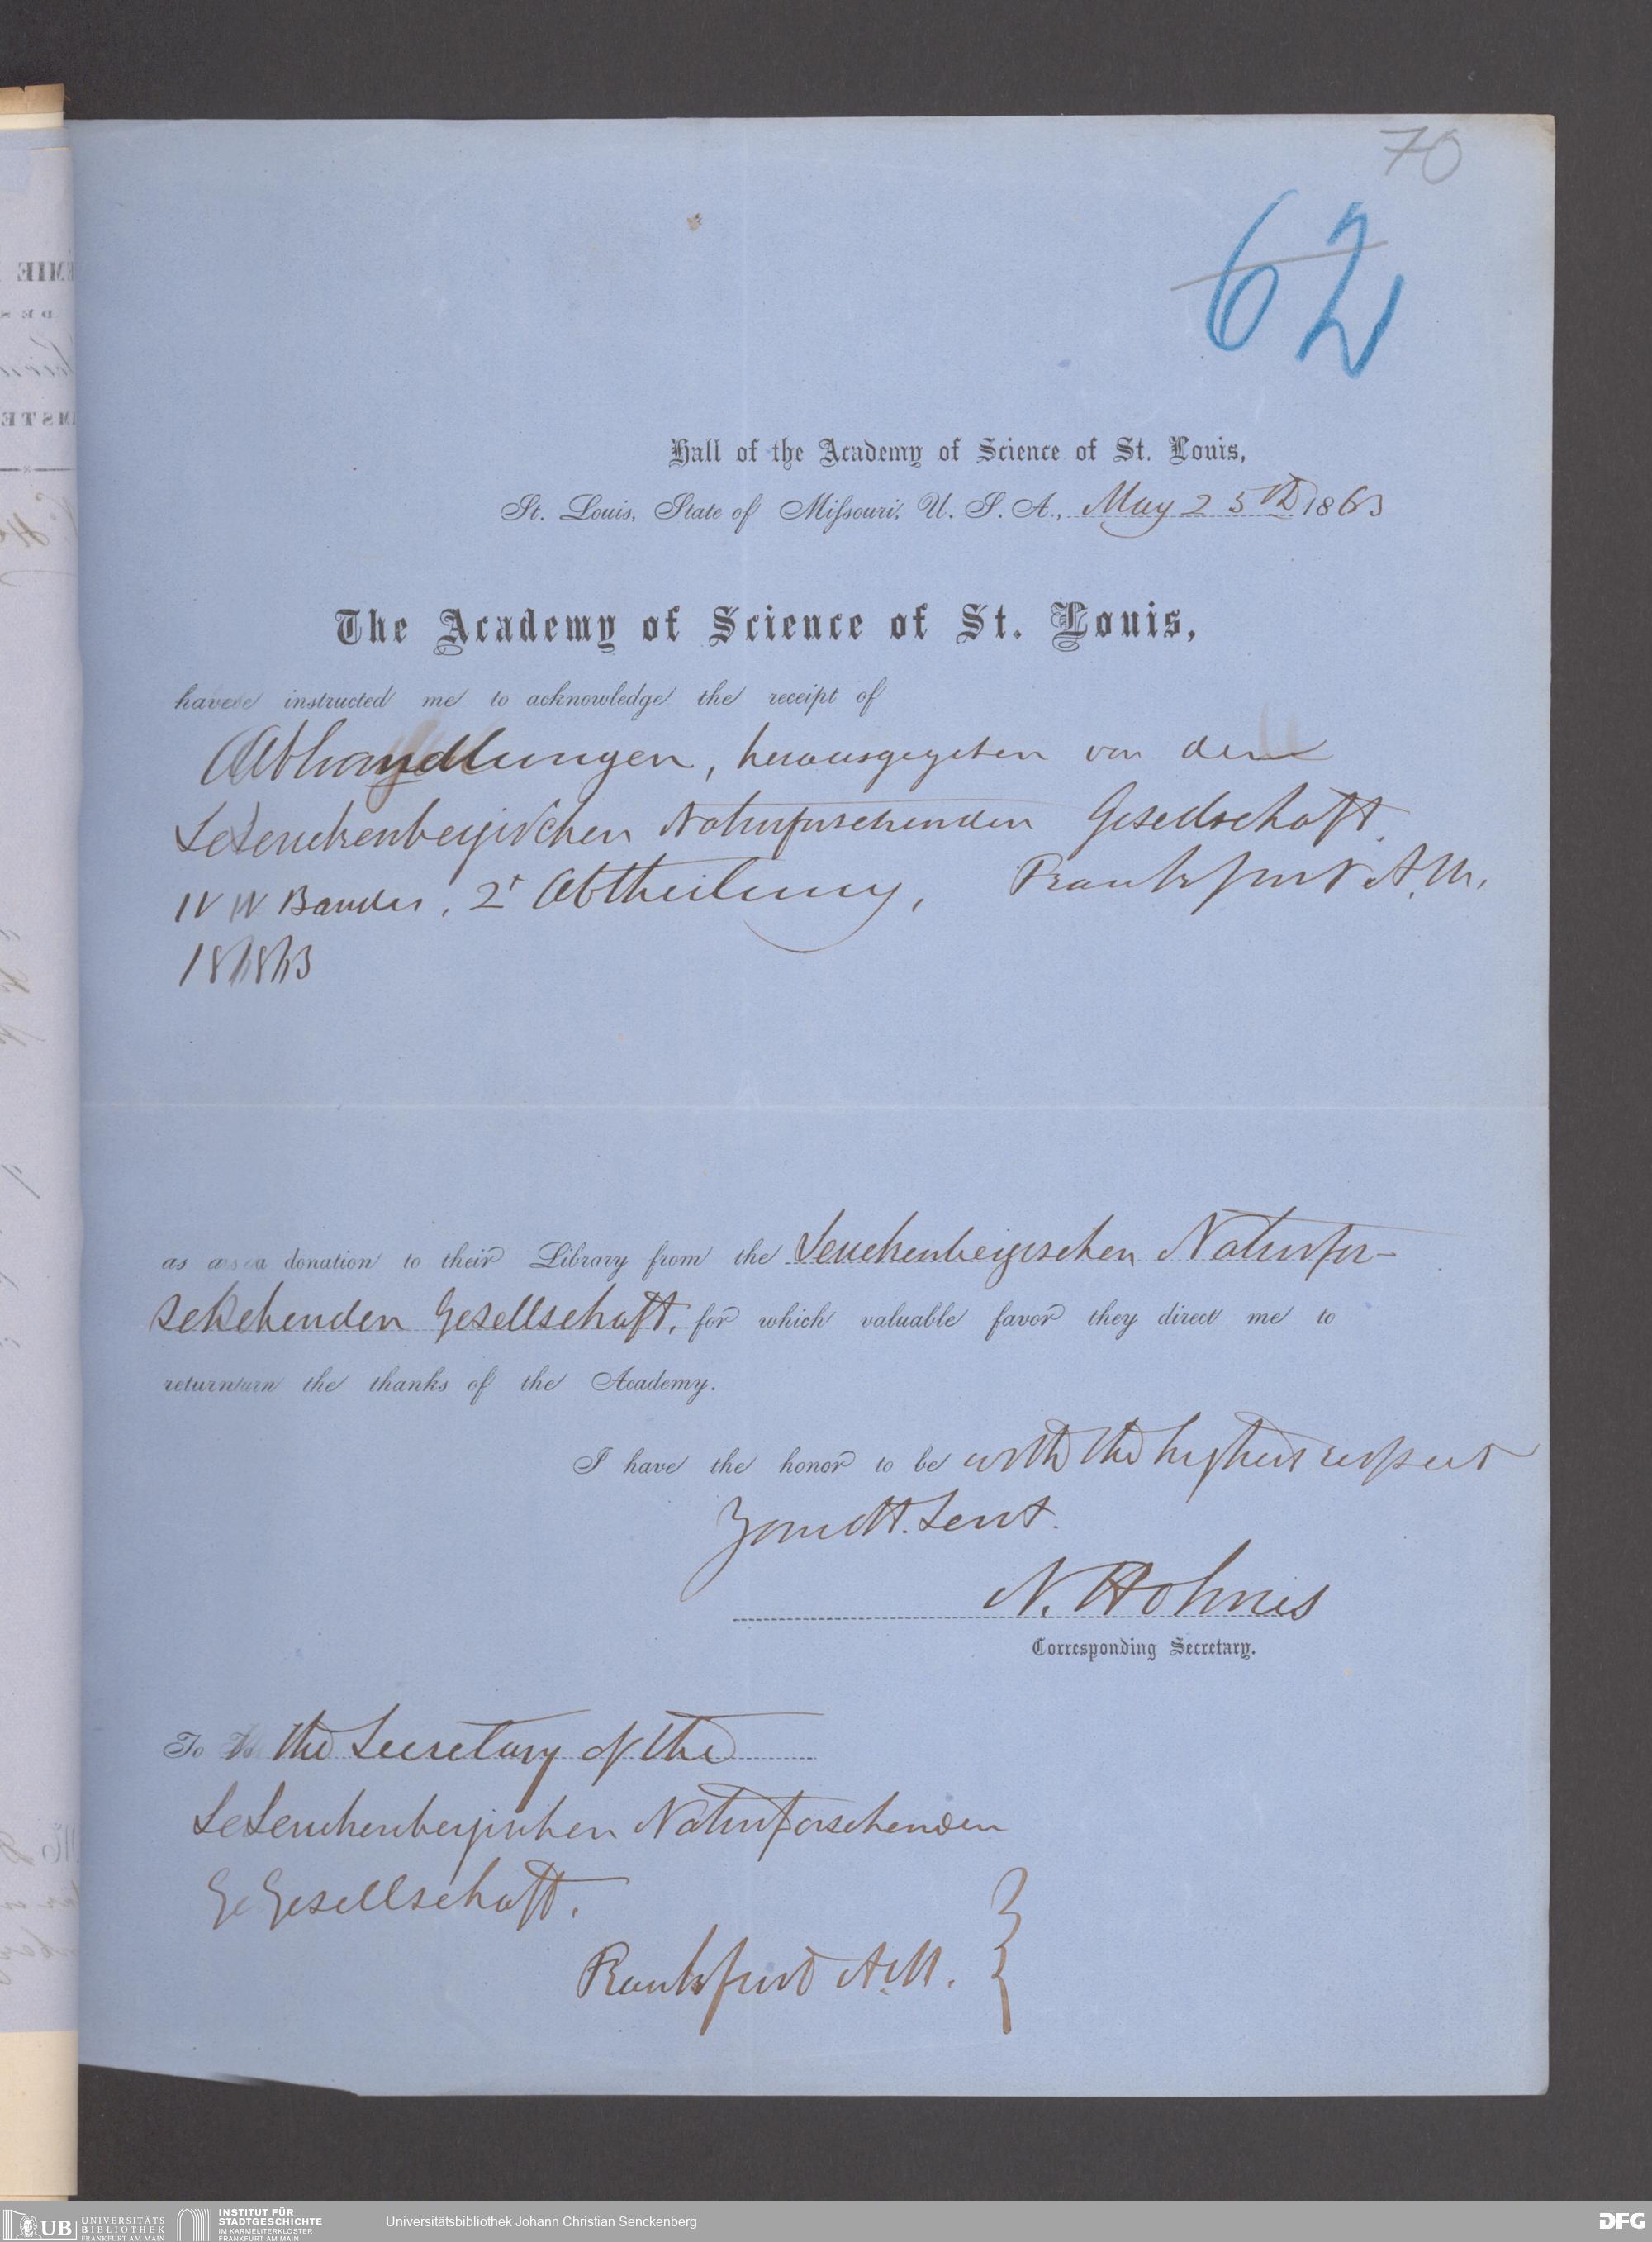 70
62
Hall of the Academy of Science of St. Louis,
St. Louis, State of Missouri, U. S. A., May 25th 1863
The Academy of Science of St. Louis,
have instructed me to acknowledge the receipt of
Abhandlungen, herausgegeben von der
Senckenbergischen Naturforschenden Gesellschaft,
IV Bandes, 2r Abtheilung, Frankfurt A.M.
1863
as a donation to their Library from the Senckenbergischen Naturfor-
schenden Gesellschaft, for which valuable favor they direct me to
return the thanks of the Academy.
I have the honor to be with the highest respect
Your Obt. Servt.
N. Holmes
Corresponding Secretary.
To the Secretary of the
Senckenbergischen Naturforschenden
Gesellschaft.
Frankfurt A.M. }
UB UNIVERSITÄTS
BIBLIOTHEK
FRANKFURT AM MAIN
INSTITUT FÜR
STADTGESCHICHTE
IM KARMELITERKLOSTER
FRANKFURT AM MAIN
Universitätsbibliothek Johann Christian Senckenberg
DFG